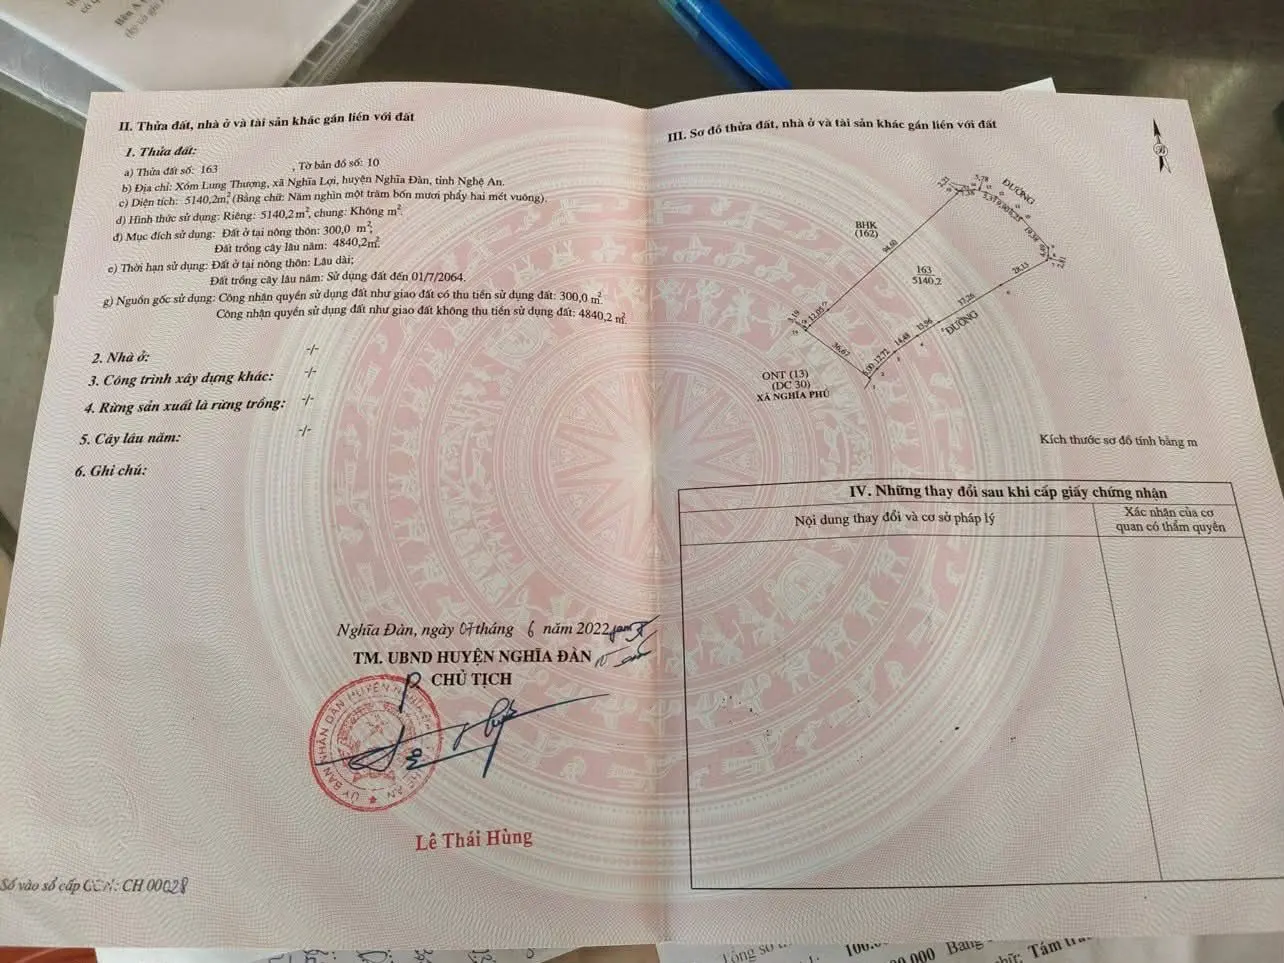 II. Thửa đất, nhà ở và tài sản khác gắn liền với đất
1. Thửa đất:
a) Thửa đất số: 163 , Tờ bản đồ số: 10
b) Địa chỉ: Xóm Lung Thượng, xã Nghĩa Lợi, huyện Nghĩa Đàn, tỉnh Nghệ An.
c) Diện tích: 5140,2m², (Bằng chữ: Năm nghìn một trăm bốn mươi phẩy hai mét vuông).
d) Hình thức sử dụng: Riêng: 5140,2m², chung: Không m².
đ) Mục đích sử dụng: Đất ở tại nông thôn: 300,0 m²;
Đất trồng cây lâu năm: 4840,2m².
e) Thời hạn sử dụng: Đất ở tại nông thôn: Lâu dài;
Đất trồng cây lâu năm: Sử dụng đất đến 01/7/2064.
g) Nguồn gốc sử dụng: Công nhận quyền sử dụng đất như giao đất có thu tiền sử dụng đất: 300,0 m².
Công nhận quyền sử dụng đất như giao đất không thu tiền sử dụng đất: 4840,2 m².
2. Nhà ở: -/-
3. Công trình xây dựng khác: -/-
4. Rừng sản xuất là rừng trồng: -/-
5. Cây lâu năm: -/-
6. Ghi chú:
Nghĩa Đàn, ngày 07 tháng 6 năm 2022
TM. UBND HUYỆN NGHĨA ĐÀN
CHỦ TỊCH
ỦY BAN NHÂN DÂN HUYỆN NGHĨA
Lê Thái Hùng
Số vào sổ cấp GCN: CH 00028
III. Sơ đồ thửa đất, nhà ở và tài sản khác gắn liền với đất
ĐƯỜNG
BHK
(162)
94,60
163
5140,2
5,78
19,38
28,15
37,26
15,96
14,48
12,72
5,00
36,67
12,05
3,19
ĐƯỜNG
ONT (13)
(DC 30)
XÃ NGHĨA PHÚ
Kích thước sơ đồ tính bằng m
IV. Những thay đổi sau khi cấp giấy chứng nhận
Nội dung thay đổi và cơ sở pháp lý
Xác nhận của cơ
quan có thẩm quyền
Tổng số
100.0
00.000 Bằng chữ: Tám tr
Bên A